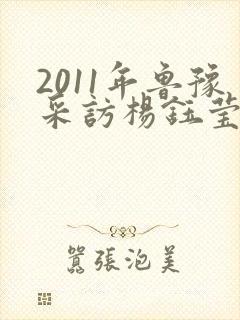 2011年鲁豫
采訪楊鈺瑩
囂張泡美